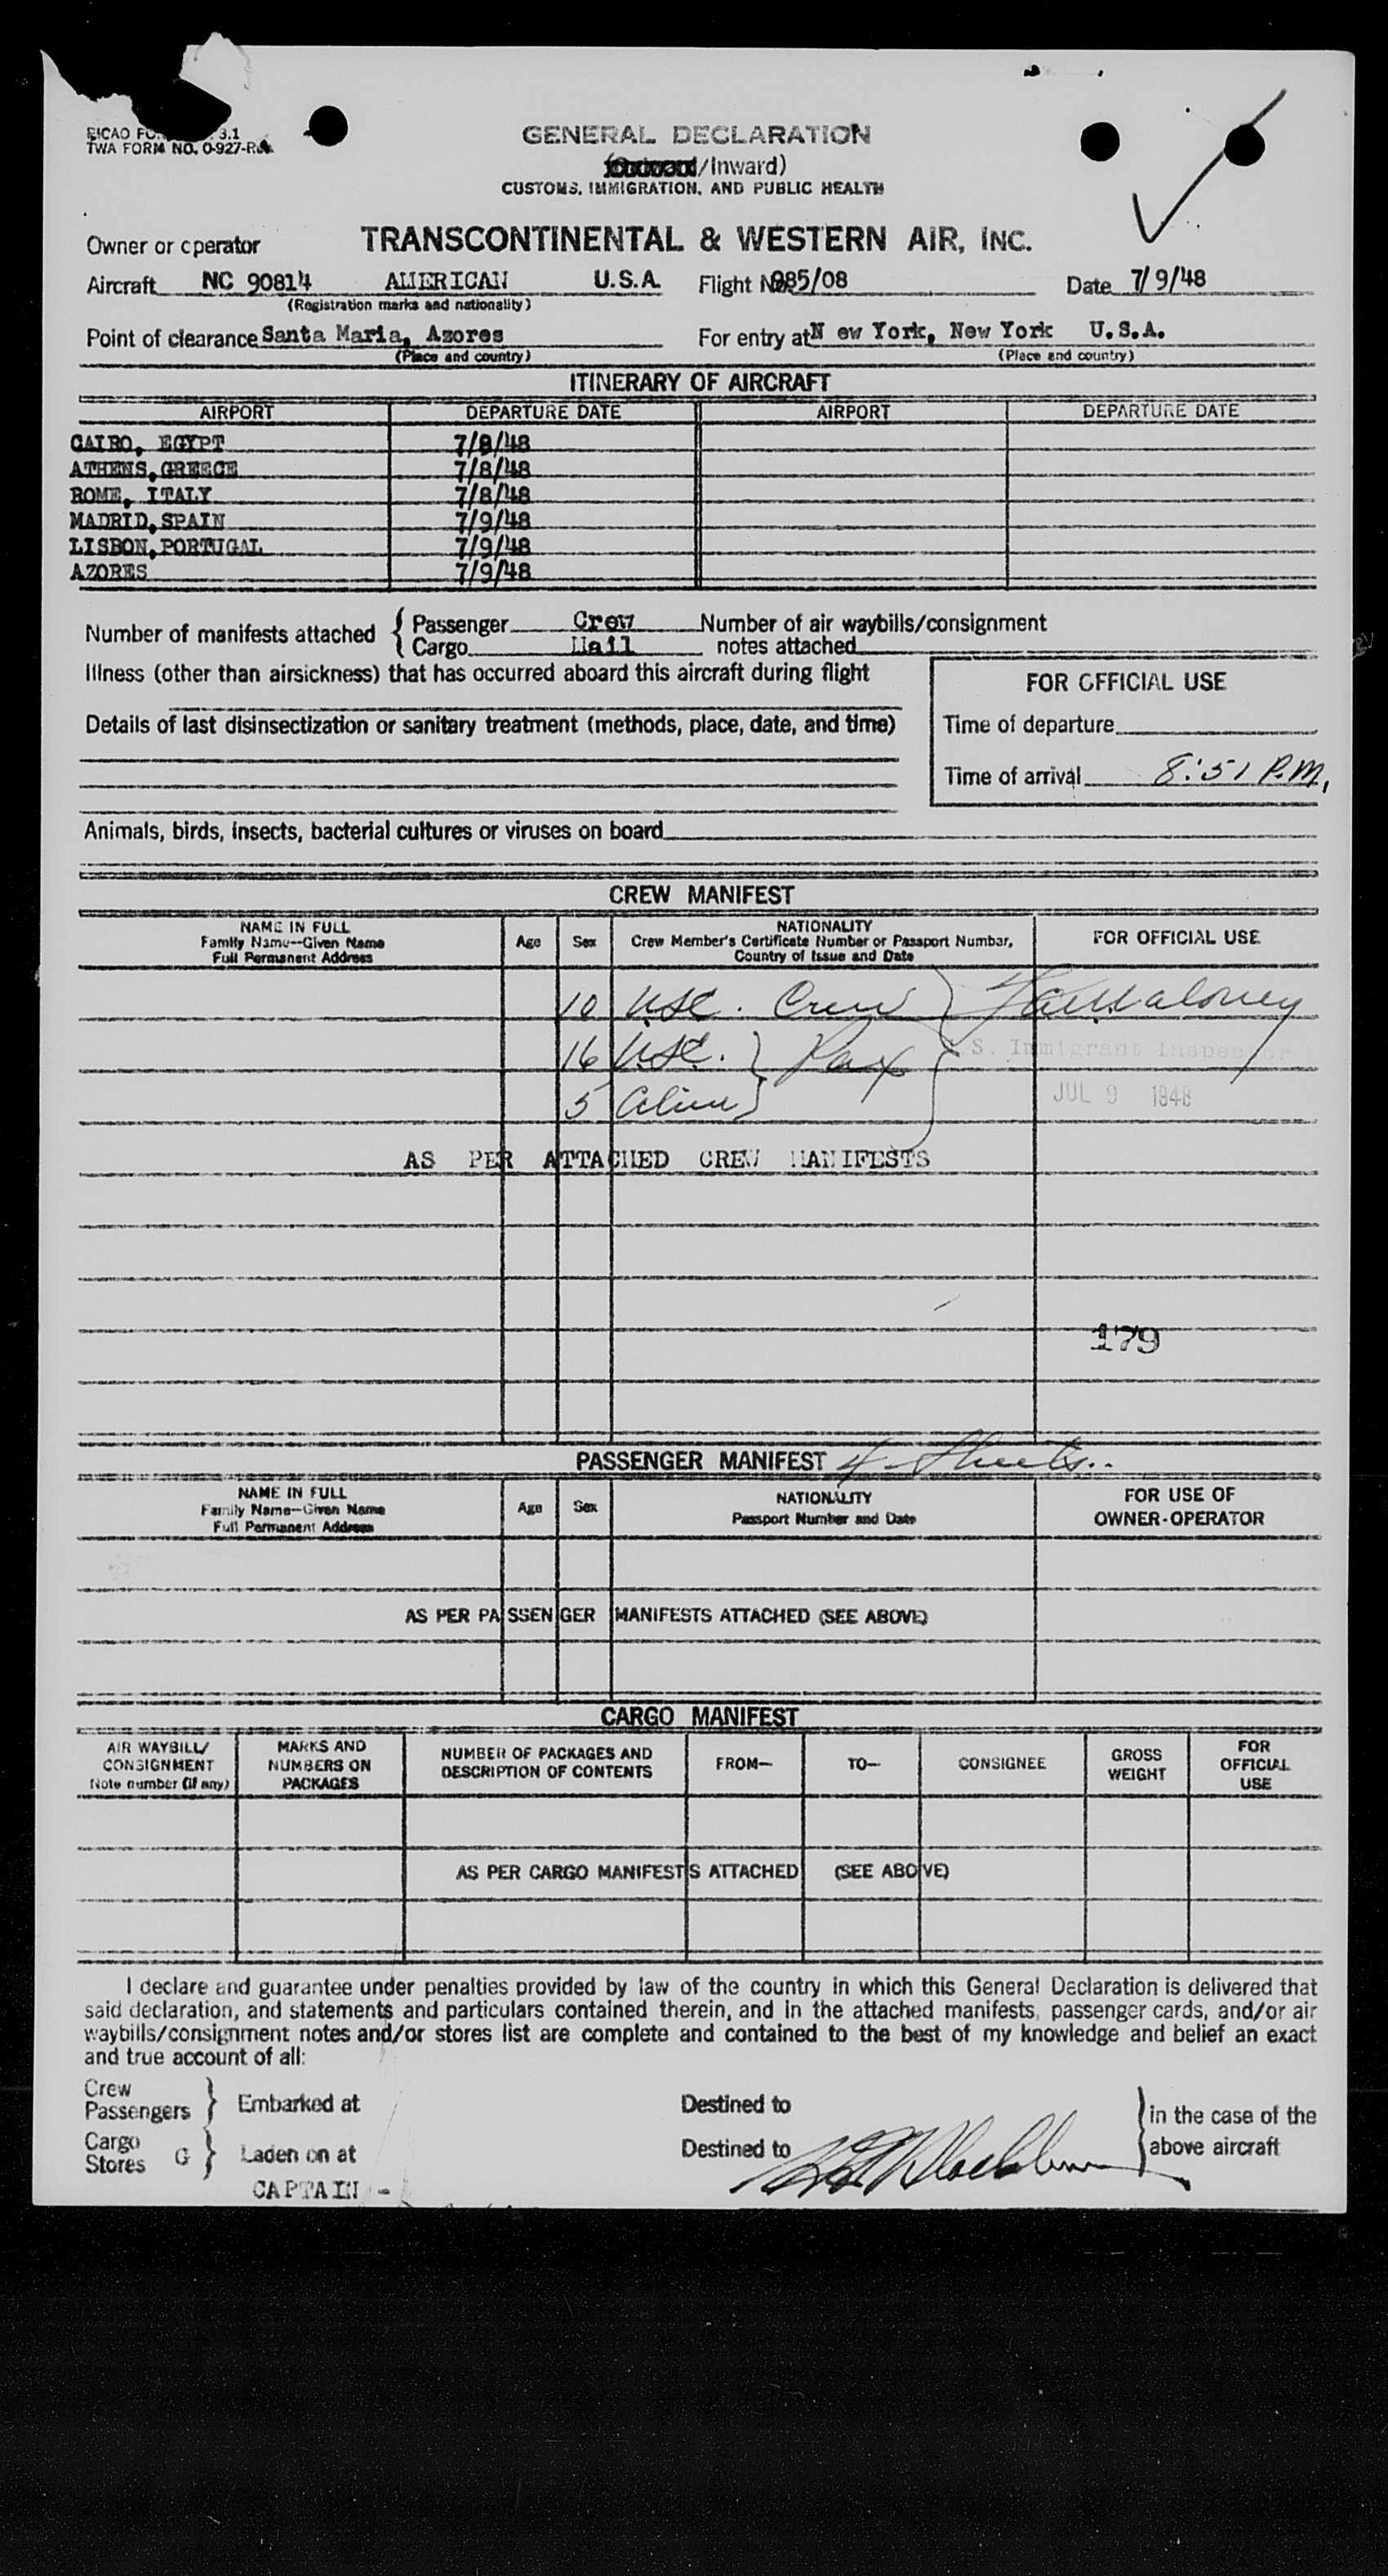 3.1
TWA FORM NO. 0-927-R
GENERAL DECLARATION
/Inward)
CUSTOMS, IMMIGRATION, AND PUBLIC HEALTH
Owner or operator TRANSCONTINENTAL & WESTERN AIR, INC.
Aircraft NC 90814 AMERICAN U.S.A. Flight No 985/08 Date 7/9/48
(Registration marks and nationality)
Point of clearance Santa Maria, Azores For entry at N ew York, New York U.S.A.
(Place and country) (Place and country)
ITINERARY OF AIRCRAFT
AIRPORT DEPARTURE DATE AIRPORT DEPARTURE DATE
CAIRO, EGYPT 7/8/48
ATHENS, GREECE 7/8/48
ROME, ITALY 7/8/48
MADRID, SPAIN 7/9/48
LISBON, PORTUGAL 7/9/48
AZORES 7/9/48
Number of manifests attached { Passenger Crew Number of air waybills/consignment
Cargo Mail notes attached
Illness (other than airsickness) that has occurred aboard this aircraft during flight
FOR OFFICIAL USE
Details of last disinsectization or sanitary treatment (methods, place, date, and time)
Time of departure
Time of arrival 8:51 P.M.
Animals, birds, insects, bacterial cultures or viruses on board
CREW MANIFEST
NAME IN FULL
Family Name--Given Name
Full Permanent Address
Age Sex
NATIONALITY
Crew Member's Certificate Number or Passport Number,
Country of Issue and Date
FOR OFFICIAL USE
10 USC. Crew
16 USC. } Pax
S. Immigrant Inspector
5 Alien
JUL 9 1948
AS PER ATTACHED CREW MANIFESTS
179
PASSENGER MANIFEST 4 Sheets..
NAME IN FULL
Family Name--Given Name
Full Permanent Address
Age Sex
NATIONALITY
Passport Number and Date
FOR USE OF
OWNER-OPERATOR
AS PER PASSENGER MANIFESTS ATTACHED (SEE ABOVE)
CARGO MANIFEST
AIR WAYBILL/
CONSIGNMENT
Note number (if any)
MARKS AND
NUMBERS ON
PACKAGES
NUMBER OF PACKAGES AND
DESCRIPTION OF CONTENTS
FROM— TO— CONSIGNEE
GROSS
WEIGHT
FOR
OFFICIAL
USE
AS PER CARGO MANIFESTS ATTACHED (SEE ABOVE)
I declare and guarantee under penalties provided by law of the country in which this General Declaration is delivered that
said declaration, and statements and particulars contained therein, and in the attached manifests, passenger cards, and/or air
waybills/consignment notes and/or stores list are complete and contained to the best of my knowledge and belief an exact
and true account of all:
Crew
Passengers } Embarked at Destined to } in the case of the
Cargo
Stores G } Laden on at Destined to above aircraft
CAPTAIN -